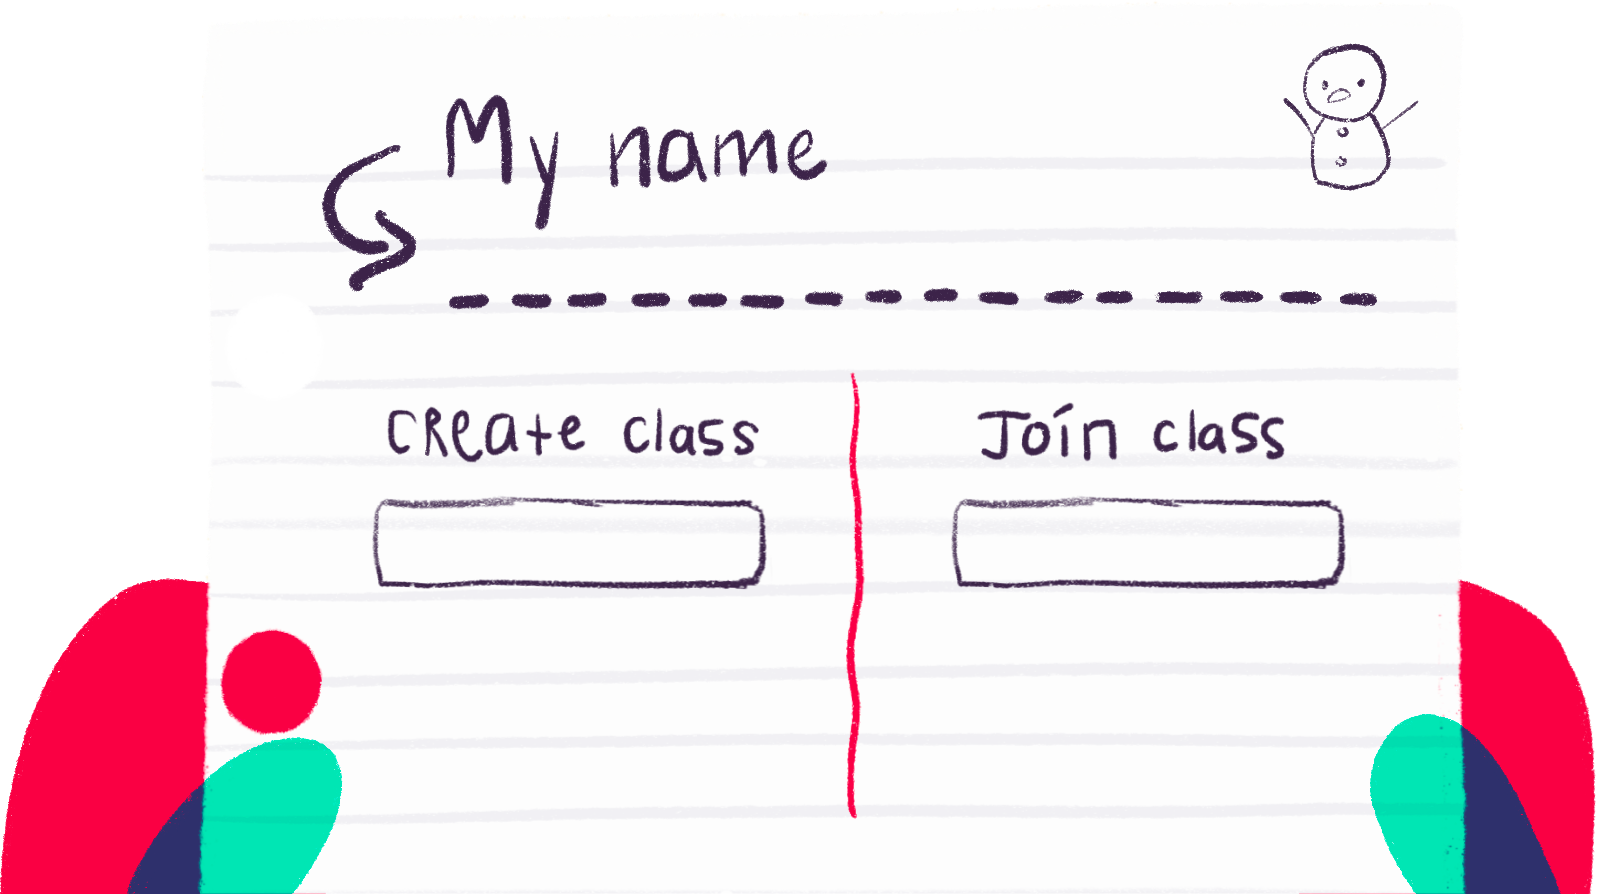 My name
Create class
Join class